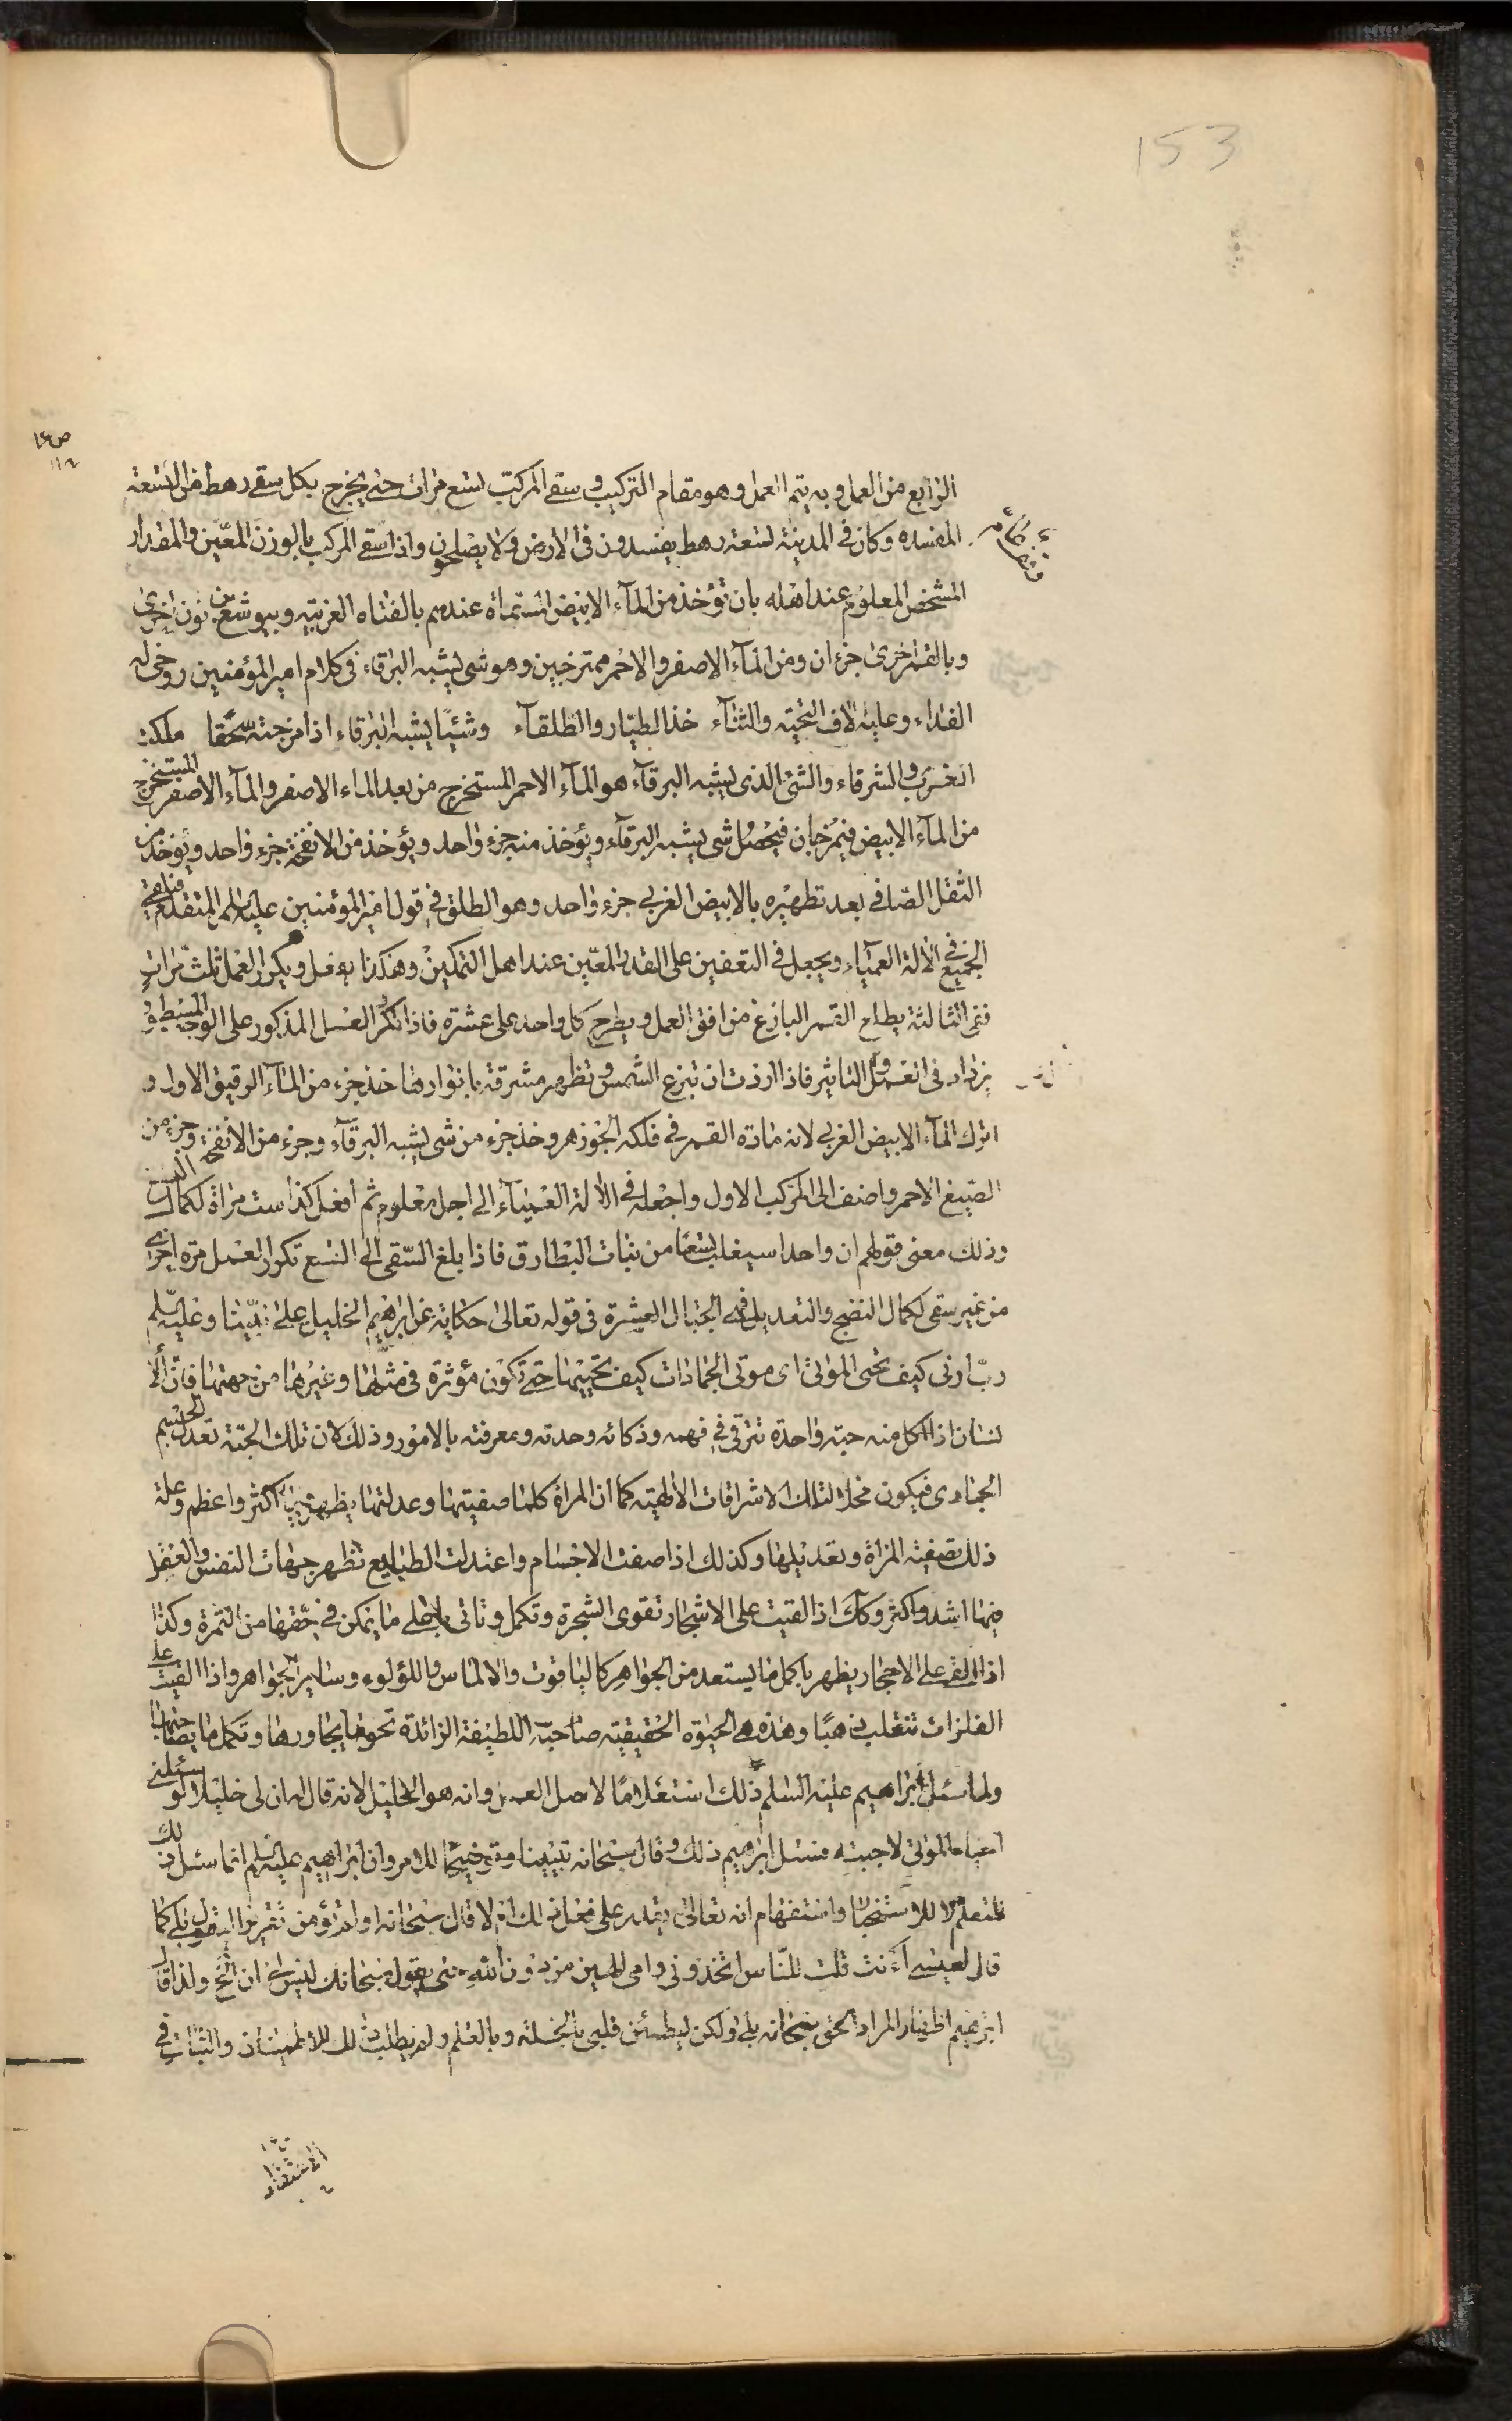 153
الرابع من العمل وبه يتم العمل وهو مقام التركيب وسقى المركب تسع مرات حتى يخرج بكل سقى رهط من التسعة
المفسده وكان فى المدينة تسعة رهط يفسدون فى الارض ولا يصلحون واذا سقى المركب بالوزن المعين والمقدار
المشخص المعلوم عند اهله بان تؤخذ من المآء الابيض المسماة عندهم بالفتاه الغربيه وبيوشع بن نون اخرى
وبالقمر اخرى جزءان ومن المآء الاصفر والاحمر ممتزجين وهو شى يشبه البرقاء فى كلام امير المؤمنين روحى له
الفداء وعليه الاف التحيّة والثنآء خذ الطيّار والطلقآء وشيئًا يشبه البرقاء اذا مزجته سحقا ملكت
الغرب والشرقاء والشئ الذى يشبه البرقآء هو المآء الاحمر المستخرج من بعد الماء الاصفر والمآء الاصفر المستخرج
من المآء الابيض فيمزجان فيحصل شى يشبه البرقآء ويؤخذ منه جزء واحد ويؤخذ من الانفحة جزء واحد ويؤخذ من
الثفل الصافى بعد تطهيره بالابيض الغربى جزء واحد وهو الطلق فى قول امير المؤمنين عليه السلم المتقدم
الجميع فى الالة العميآء ويجعل فى التعفين على القدر المعين عند اهل التمكين وهكذا يفعل ويكرر العمل ثلث مرات
ففى الثالثة يطلع القمر البازغ من افق العمل ويطرح كل واحد على عشره فاذا تكرر العمل المذكور على الوجه المسطور
يزداد فى العمل والتاثير فاذا اردت ان تبزع الشمس وتظهر مشرقة بانوارها خذ جزء من المآء الرقيق الاول و
اترك المآء الابيض الغربى لانه مادة القمر فى فلكه الجوزهر وخذ جزء من شى يشبه البرقآء وجزء من الانفحة وجزء من
الصبغ الاحمر واضف الى المركب الاول واجعله فى الالة العميآء الى اجل معلوم ثم افعل كذا ست مراة لكمال
وذلك معنى قولهم ان واحدا سيغلب تسعا من بنات البطارق فاذا بلغ السقى الى التسع تكرر العمل مرة اخرى
من غير سقى لكمال النضج والتعديل فهى الجبال العشرة فى قوله تعالى حكاية عن ابراهيم الخليل على نبينا وعليه السلم
ربّ ارنى كيف تحى الموتى اى موتى الجمادات كيف تحييها حتى تكون مؤثرة فى مثلها وغيرها من جهتها فان الا
نسان اذا اكل منه حبة واحدة تترقى فى فهمه وذكائه وحدته ومعرفته بالامور وذلك لان تلك الحبّة تعدل الجسم
الجمادى فيكون محلا لتلك الاشراقات الالهية كما ان المراة كلما صفيتها وعدلتها يظهر فيها اكثر واعظم وعلة
ذلك تصفية المراة وتعديلها وكذلك اذا صفت الاجسام واعتدلت الطبايع تظهر جهات النفس والعقل
فيها اشد واكثر وكك اذا القيت على الاشجار تقوى الشجرة وتكمل وتاتى باعلى ما يمكن فى حقها من الثمرة وكذا
اذا القى على الاحجار يظهر باكمل ما يستعد من الجواهر كالياقوت والالماس واللؤلوء وساير الجواهر واذا القيت على
الفلزات تنقلب ذهبًا وهذه هى الحيوة الحقيقية صاحبة اللطيفة الزائدة تحيى ما يجاورها وتكمل ما يصاحبها
ولما سئل ابراهيم عليه السلم ذلك استعلامًا لاصل العمل وانه هو الخليل لانه قال له ان لى خليلا لو سئلنى
احياء الموتى لاجبته فسئل ابراهيم ذلك وقال سبحانه تبيينا وتوضيحًا للامر وان ابراهيم عليه السلم انما سئل ذلك
للتعلم لا للاستفهام انه تعالى يقدر على فعل ذلك ام لا قال سبحانه اولم تؤمن كما
قال لعيسى ءانت قلت للناس اتخذونى وامى الهين من دون الله حتى يقول سبحانك ليس لى ان الخ ولذا قال
ابرهيم اظهار المراد الحق سبحانه بلى ولكن ليطمئن قلبى بالخلة وبالعلم ولم يطلب ذلك للاطمينان والثبات فى